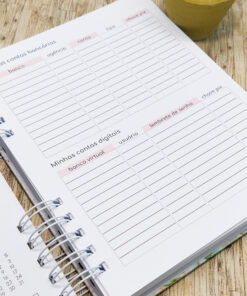 as contas bancárias
banco agência conta tipo chave pix
Minhas contas digitais
banco virtual usuário lembrete de senha chave pix